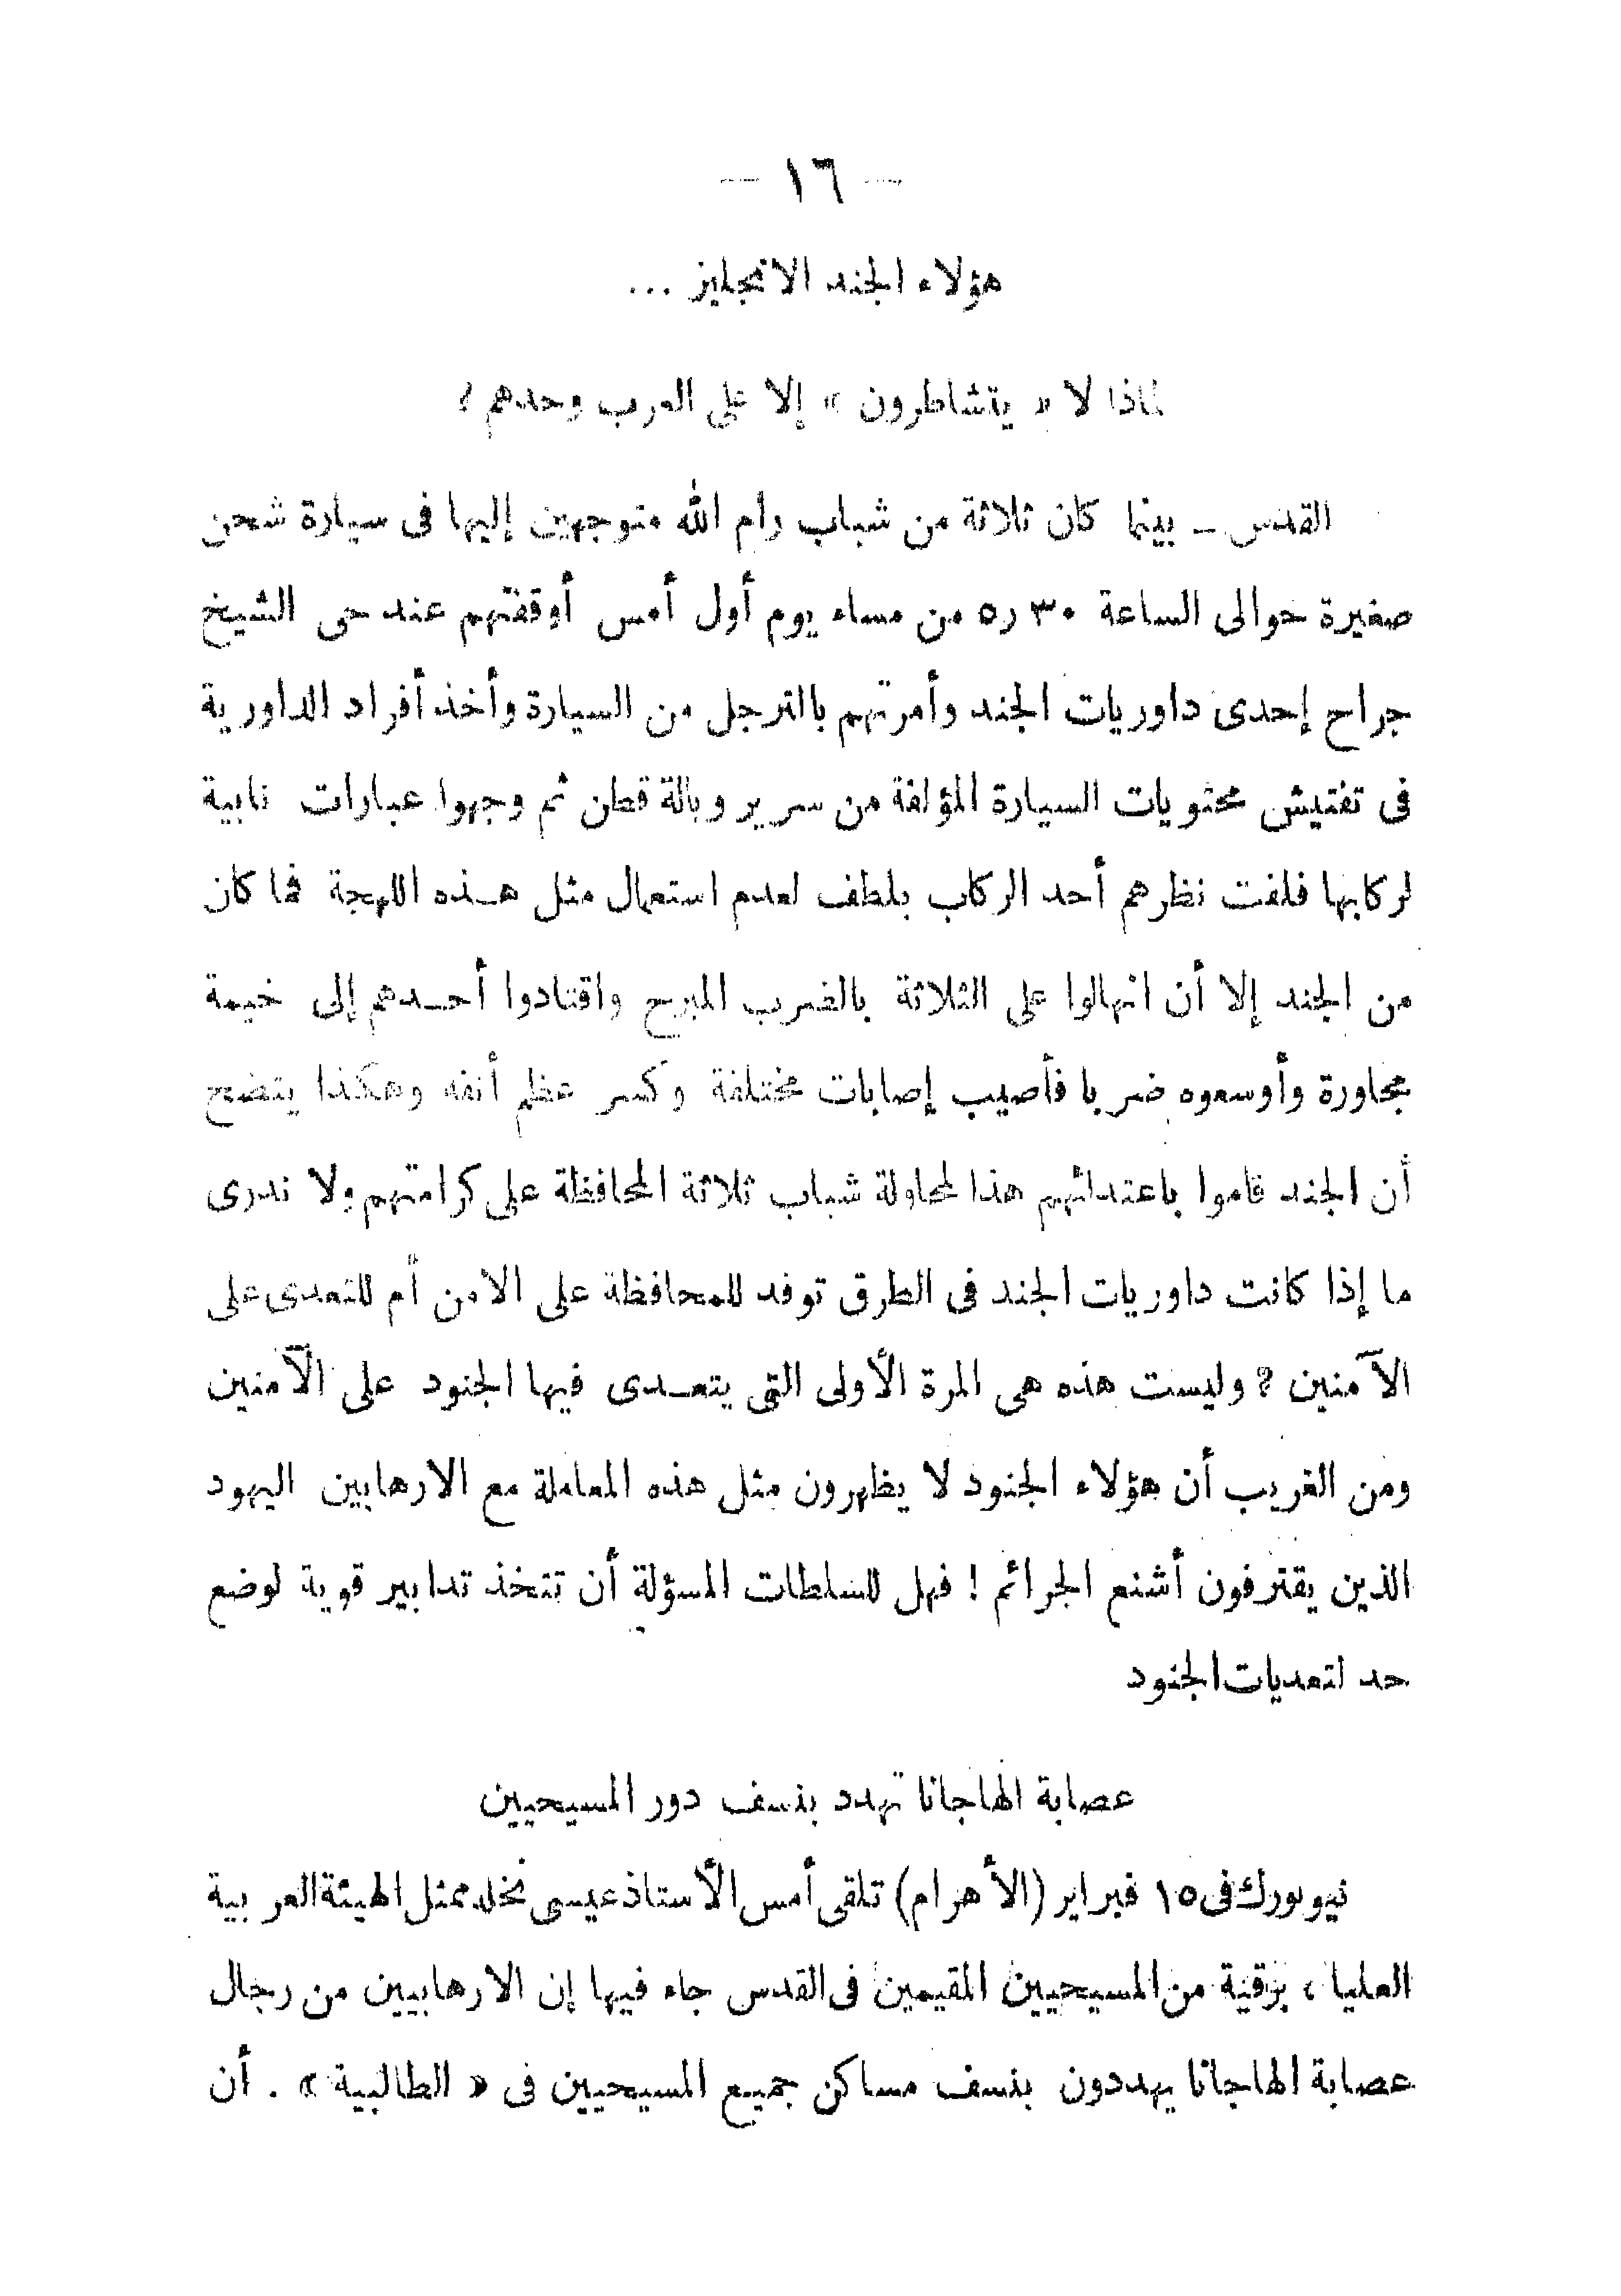 — ١٦ —
هؤلاء الجند الانجليز ...
لماذا لا « يتشاطرون » إلا على العرب وحدهم ؟
القدس ــ بينما كان ثلاثة من شباب رام الله متوجهين إليها فى سيارة شحن
صغيرة حوالى الساعة ٣٠ ر٥ من مساء يوم أول أمس أوقفتهم عند حى الشيخ
جراح إحدى داوريات الجند وأمرتهم بالترجل من السيارة وأخذ أفراد الداورية
فى تفتيش محتويات السيارة المؤلفة من سرير وبالة قطن ثم وجهوا عبارات نابية
لركابها فلفت نظرهم أحد الركاب بلطف لعدم استعمال مثل هـذه اللهجة فما كان
من الجند إلا أن انهالوا على الثلاثة بالضرب المبرح واقتادوا أحـدهم إلى خيمة
مجاورة وأوسعوه ضربا فأصيب إصابات مختلفة وكسر عظم أنفه وهكذا يتضح
أن الجند قاموا باعتدائهم هذا لمحاولة شباب ثلاثة المحافظة على كرامتهم ولا ندرى
ما إذا كانت داوريات الجند فى الطرق توفد للمحافظة على الامن أم للتعدى على
الآمنين ? وليست هذه هى المرة الأولى التى يتعـدى فيها الجنود على الآمنين
ومن الغريب أن هؤلاء الجنود لا يظهرون مثل هذه المعاملة مع الارهابين اليهود
الذين يقترفون أشنع الجرائم ! فهل للسلطات المسؤلة أن تتخذ تدابير قوية لوضع
حد لتعديات الجنود
عصابة الهاجانا تهدد بنسف دور المسيحيين
نيويورك فى ١٥ فبراير (الأهرام) تلقى أمس الأستاذ عيسى نخله ممثل الهيئة العربية
العليا ، برقية من المسيحيين المقيمين فى القدس جاء فيها إن الارهابيين من رجال
عصابة الهاجانا يهددون بنسف مساكن جميع المسيحيين فى « الطالبية » . أن